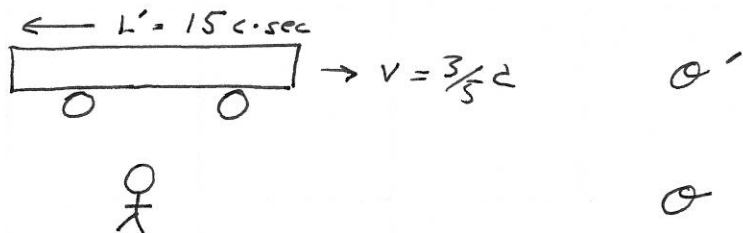 ← L' = 15 c·sec
→ v = 3/5 c
O'
O